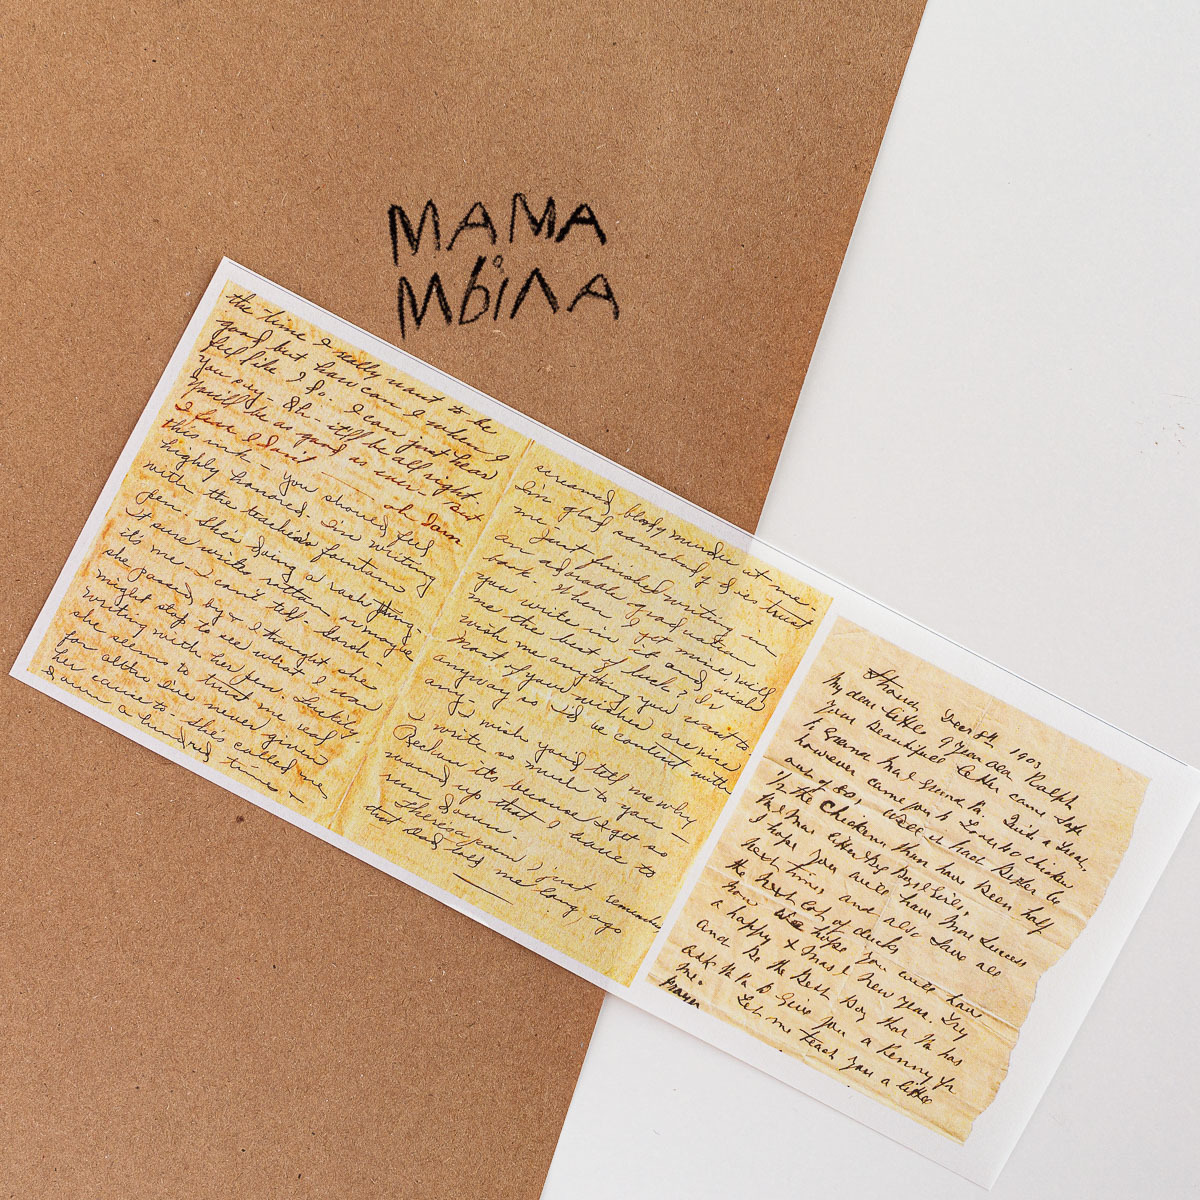 MAMA
МЫЛА
the time I really want to be
good but how can I when I
feel like I do. I can just hear
you say - Oh - it'll be all right -
you'll be as good as ever - But
I fear I don't
this ink - you should feel
highly honored. I'm writing
with the teacher's fountain
pen. She's doing a rash thing.
It sure writes rotten or maybe
its me - I can't tell.
she passed by - I thought she
might stop to see what I was
writing with her pen. Luckily
she seems to trust me real
for altho I've never given
her cause to - she called me
down a hundred times &
screamed bloody murder at me
I'm glad somebody does trust
me.
Just finished writing in
an adorable graduation
book. When I get mine will
you write in it and wish
me the best of luck? Or
wish me anything you want to
Most of your wishes are nice
anyway so I'd be content with
any. I wish you'd tell me why
I write so much to you -
Reckon its because I get so
wound up that I have to
run down.
Theres a poem I just remember
that Dad told me long ago
Dec 8th 1903
My dear Little 9 year old Ralph,
Your Beautiful Letter came Safe
to Grand Ma & Grand Pa. Quite a Treat,
however came you to Loose 40 chicken
out of 80, Well it had Better be
the Chickens than have Been half
I hope you will have More Success
next time, and also Save all
the next Lot of ducks
now we hope you will have
a happy X Mas & New Year. Try
and be the Best Boy that Pa has
ask Pa to Give you a Penny for
me. Let me teach you a little
Prayer